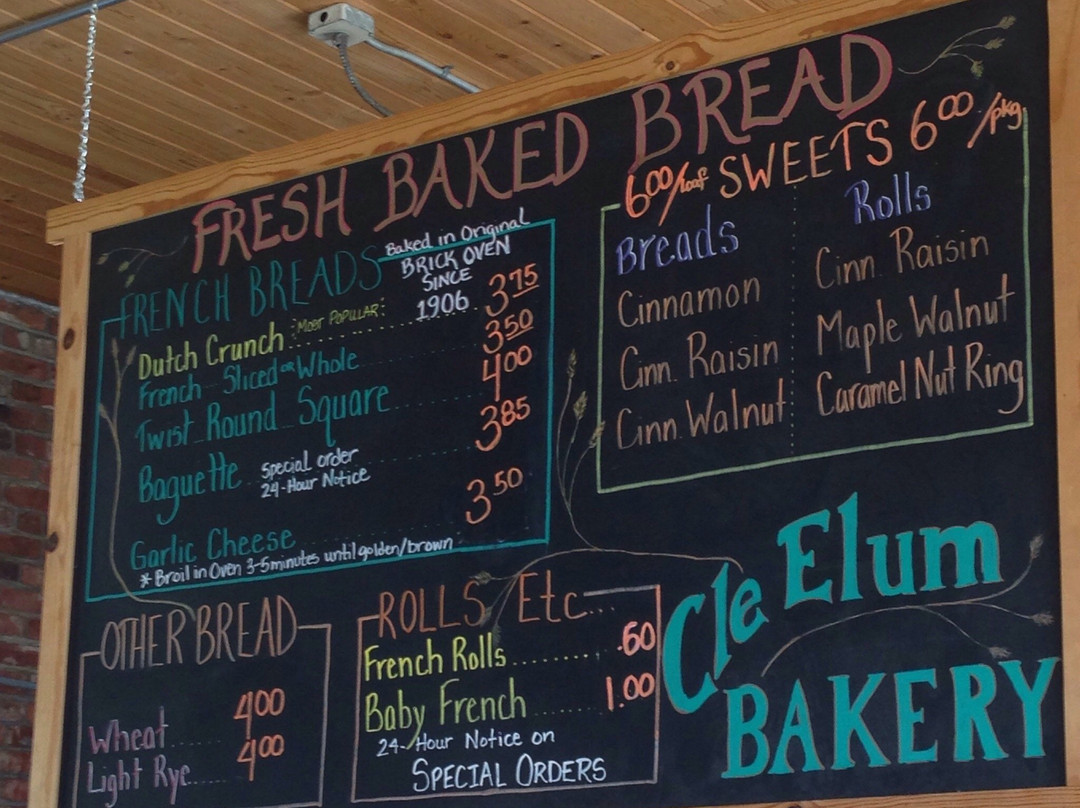 FRESH BAKED BREAD
FRENCH BREADS
Baked in Original
BRICK OVEN
SINCE
1906
Dutch Crunch :Most POPULAR: 3.75
French Sliced or Whole 3.50
Twist Round Square 4.00
Baguette special order 3.85
24-Hour Notice
Garlic Cheese 3.50
* Broil in Oven 3-5 minutes until golden/brown
6.00/loaf SWEETS 6.00/pkg
Breads
Cinnamon
Cinn. Raisin
Cinn. Walnut
Rolls
Cinn. Raisin
Maple Walnut
Caramel Nut Ring
OTHER BREAD
Wheat 4.00
Light Rye 4.00
ROLLS Etc...
French Rolls .60
Baby French 1.00
24-Hour Notice on
SPECIAL ORDERS
Cle Elum
BAKERY